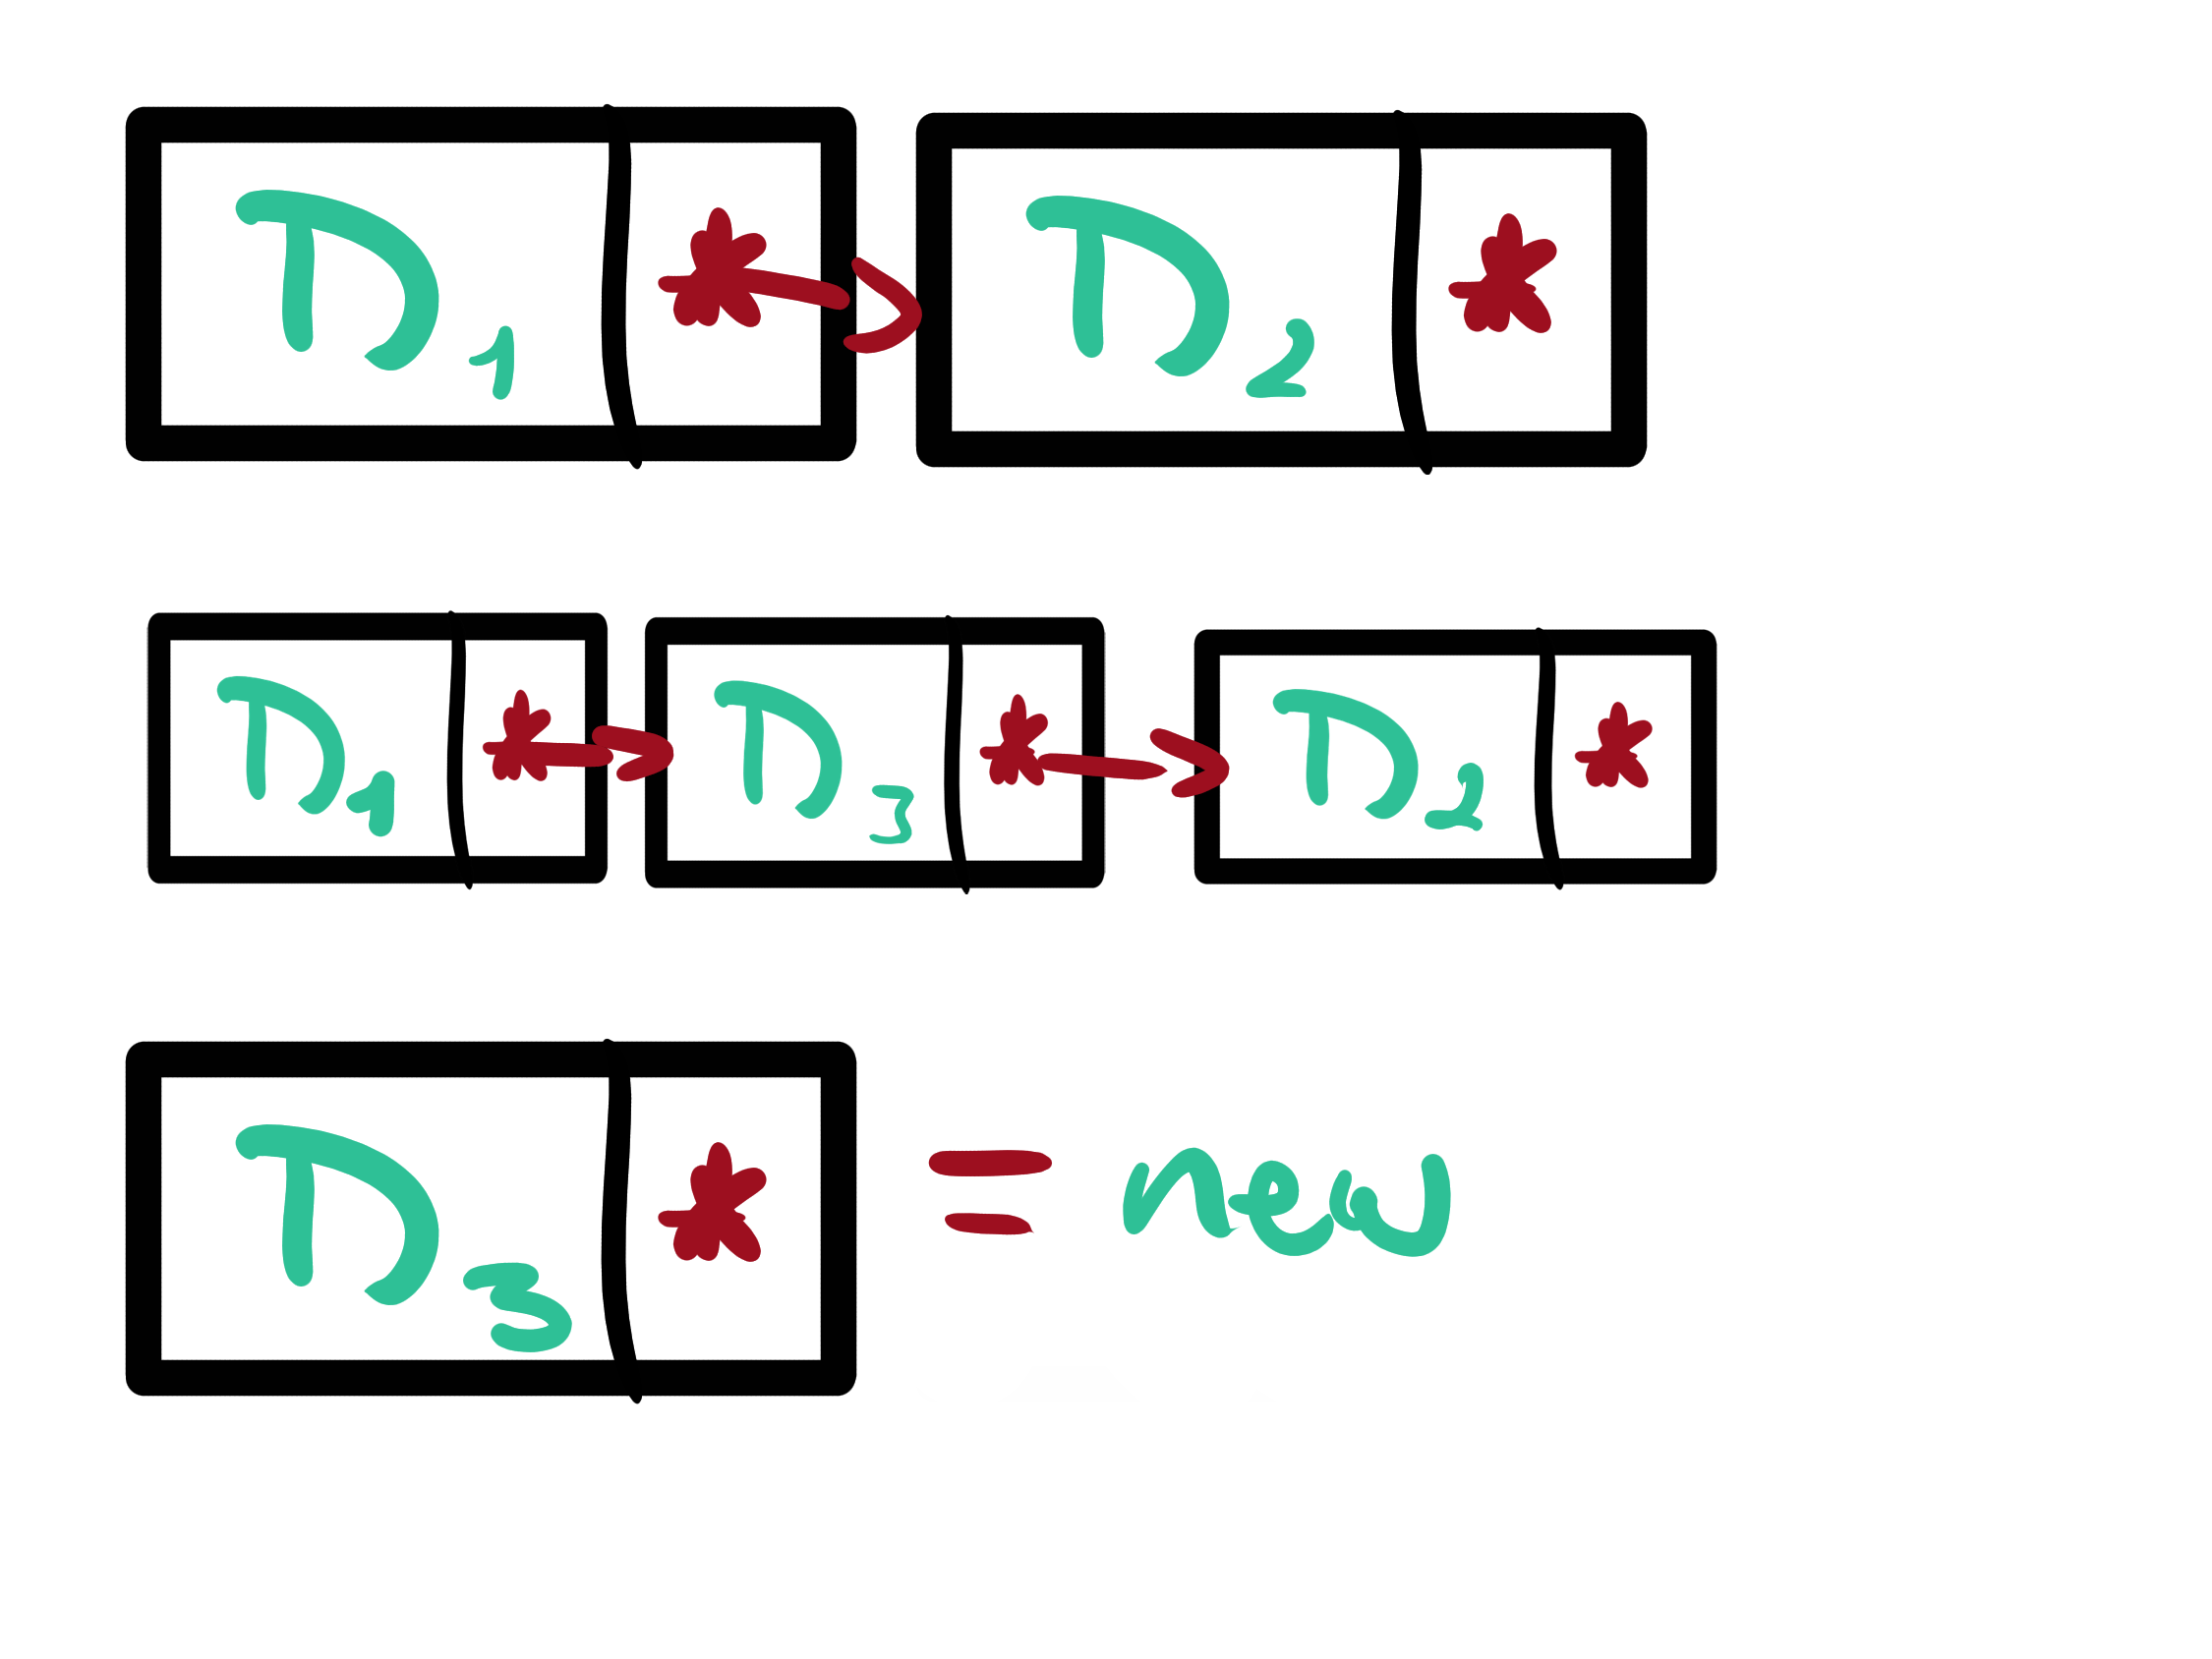 D1 * D2 *
D1 * D3 * D2 *
D3 * = new